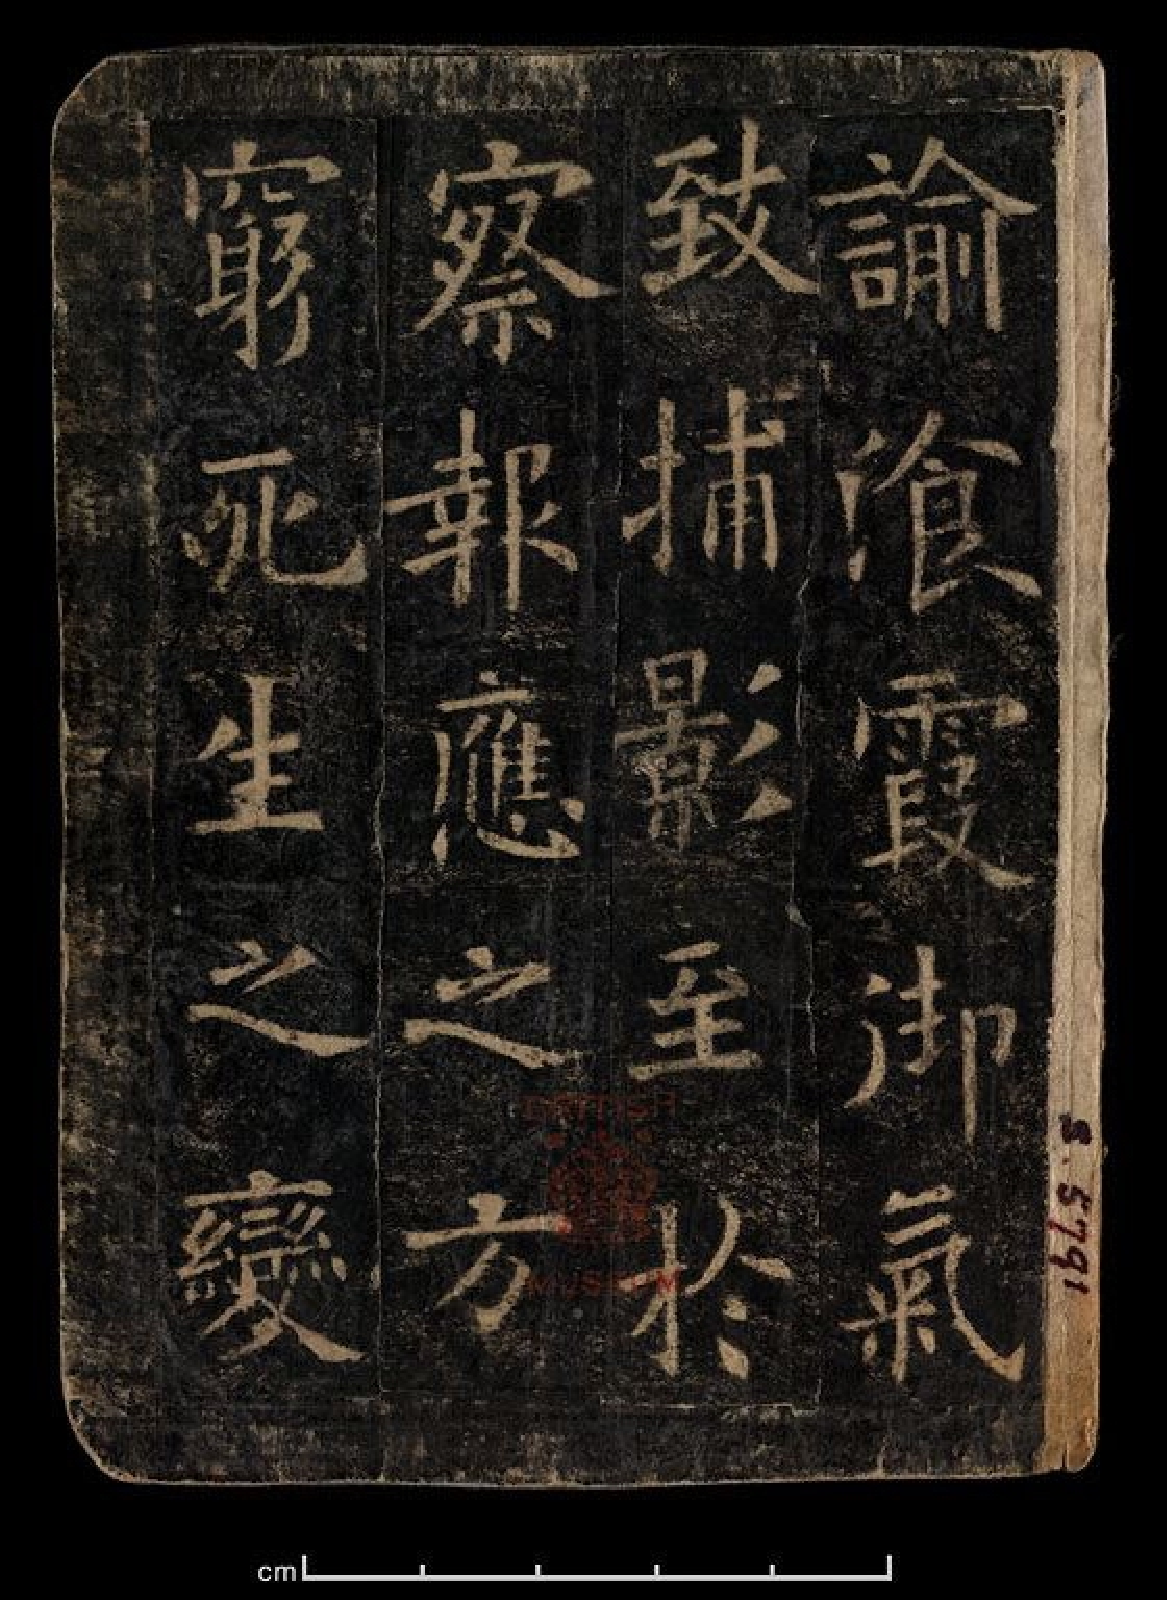 諭飡霞御氣
致捕影至於
察報應之方
窮死生之變
BRITISH
MUSEUM
S. 5791
cm